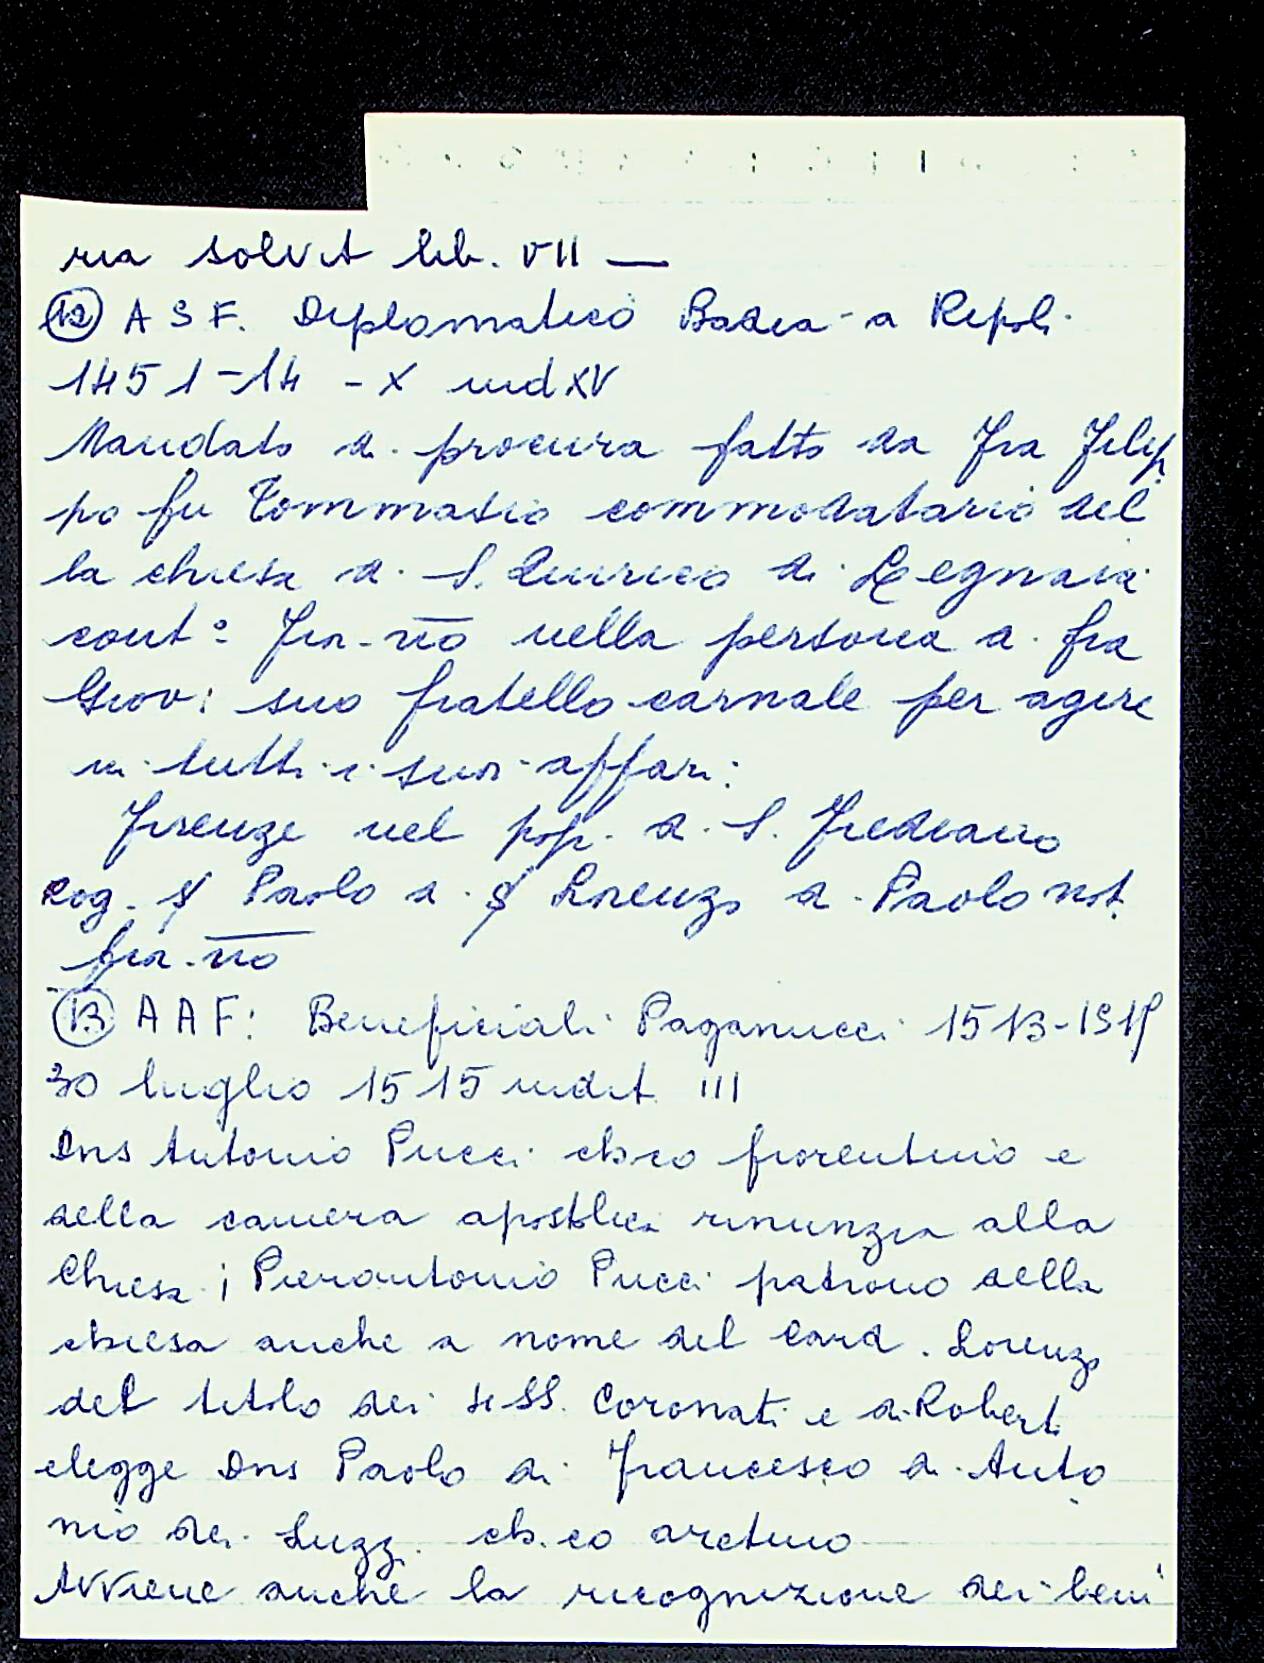 ria solvit lib. VII —
⑫ A S F. Diplomatico Badia a Ripoli
1451-14 - X ind XV
Mandato di procura fatto da Fra Filip
po fu Tommasio commodatario del
la chiesa di S. Quirico di Legnaia
cont° fior-no nella persona di fra
Giov: suo fratello carnale per agire
in tutti i suoi affari:
Firenze nel pop. di S. Frediano
Rog. S Paolo di S Lorenzo di Paolo not.
fior.no
⑬ A A F: Beneficiali Paganucci 1513-1519
30 luglio 1515 indit III
Dns Antonio Pucci ch.co fiorentino e
della camera apostolica rinunzia alla
Chiesa; Pierantonio Pucci patrono della
chiesa anche a nome del Card. Lorenzo
del titolo dei 4 SS. Coronati e di Robert
elegge Dns Paolo di Francesco di Anto
nio dei Luzzi ch.co aretino
Avviene anche la ricognizione dei beni